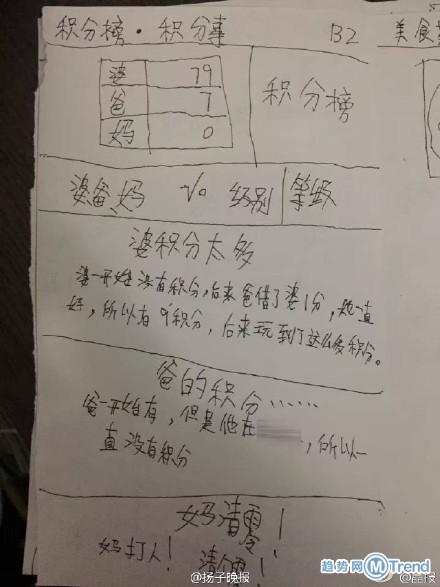 积分榜·积分事 B2
美食
婆 79
爸 7
妈 0
积分榜
婆、爸、妈 V0 级别 等级
婆积分太多
婆一开始没有积分,后来爸借了婆1分,她一直
好,所以有9积分,后来玩到了这么多积分。
爸的积分……
爸一开始有,但是他在 ,所以一
直没有积分
妈清零!
妈打人! 清零!
趋势网 M Trend
@扬子晚报